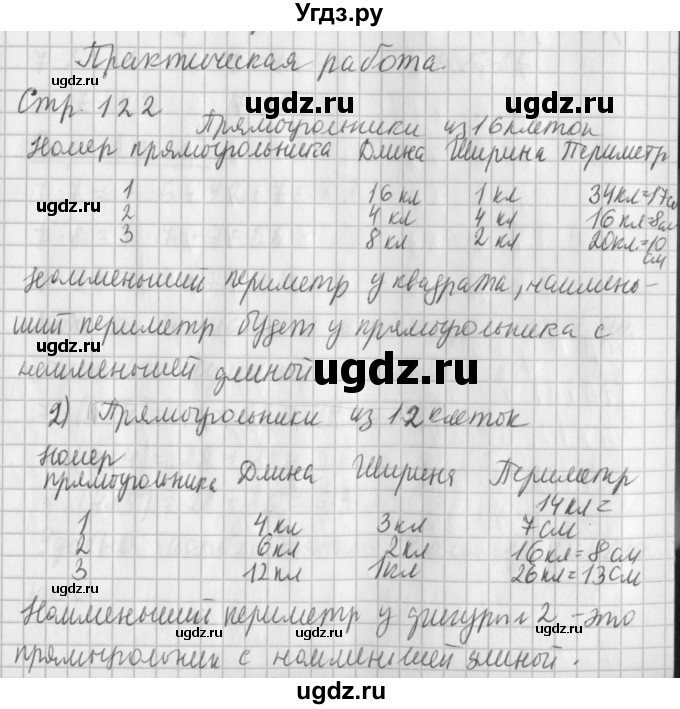 Угдз.ру
Практическая работа.
ugdz.ru
Стр. 122
ugdz.ru
ugdz.ru
Прямоугольники из 16 клеток
Номер прямоугольника Длина Ширина Периметр
1 16 кл 1 кл 34кл=17см
ugdz.ru
2 4 кл 4 кл 16 кл=8см
3 8 кл 2 кл 20кл=10
см
Наименьший периметр у квадрата, наимень-
ший периметр будет у прямоугольника с
ugdz.ru
наименьшей длиной
ugdz.ru
2) Прямоугольники из 12 клеток
ugdz.ru
Номер
прямоугольника Длина Ширина Периметр
14 кл=
1 4 кл 3 кл 7 см
2 6 кл 2 кл 16 кл=8 см
ugdz.ru
3 12 кл 1 кл 26 кл=13 см
Наименьший периметр у фигуры 2 - это
ugdz.ru
ugdz.ru
прямоугольник с наименьшей длиной.
ugdz.ru